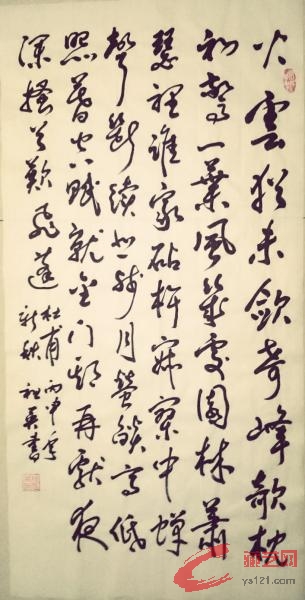 火雲猶未歛奇峰欹枕
初驚一葉風幾處園林蕭
瑟裡誰家砧杵寂寥中蟬
聲斷續悲殘月螢燄高低
照暮空賦就金門期再獻夜
深搔首歎飛蓬
杜甫 丙申
新秋 書
ys121.com